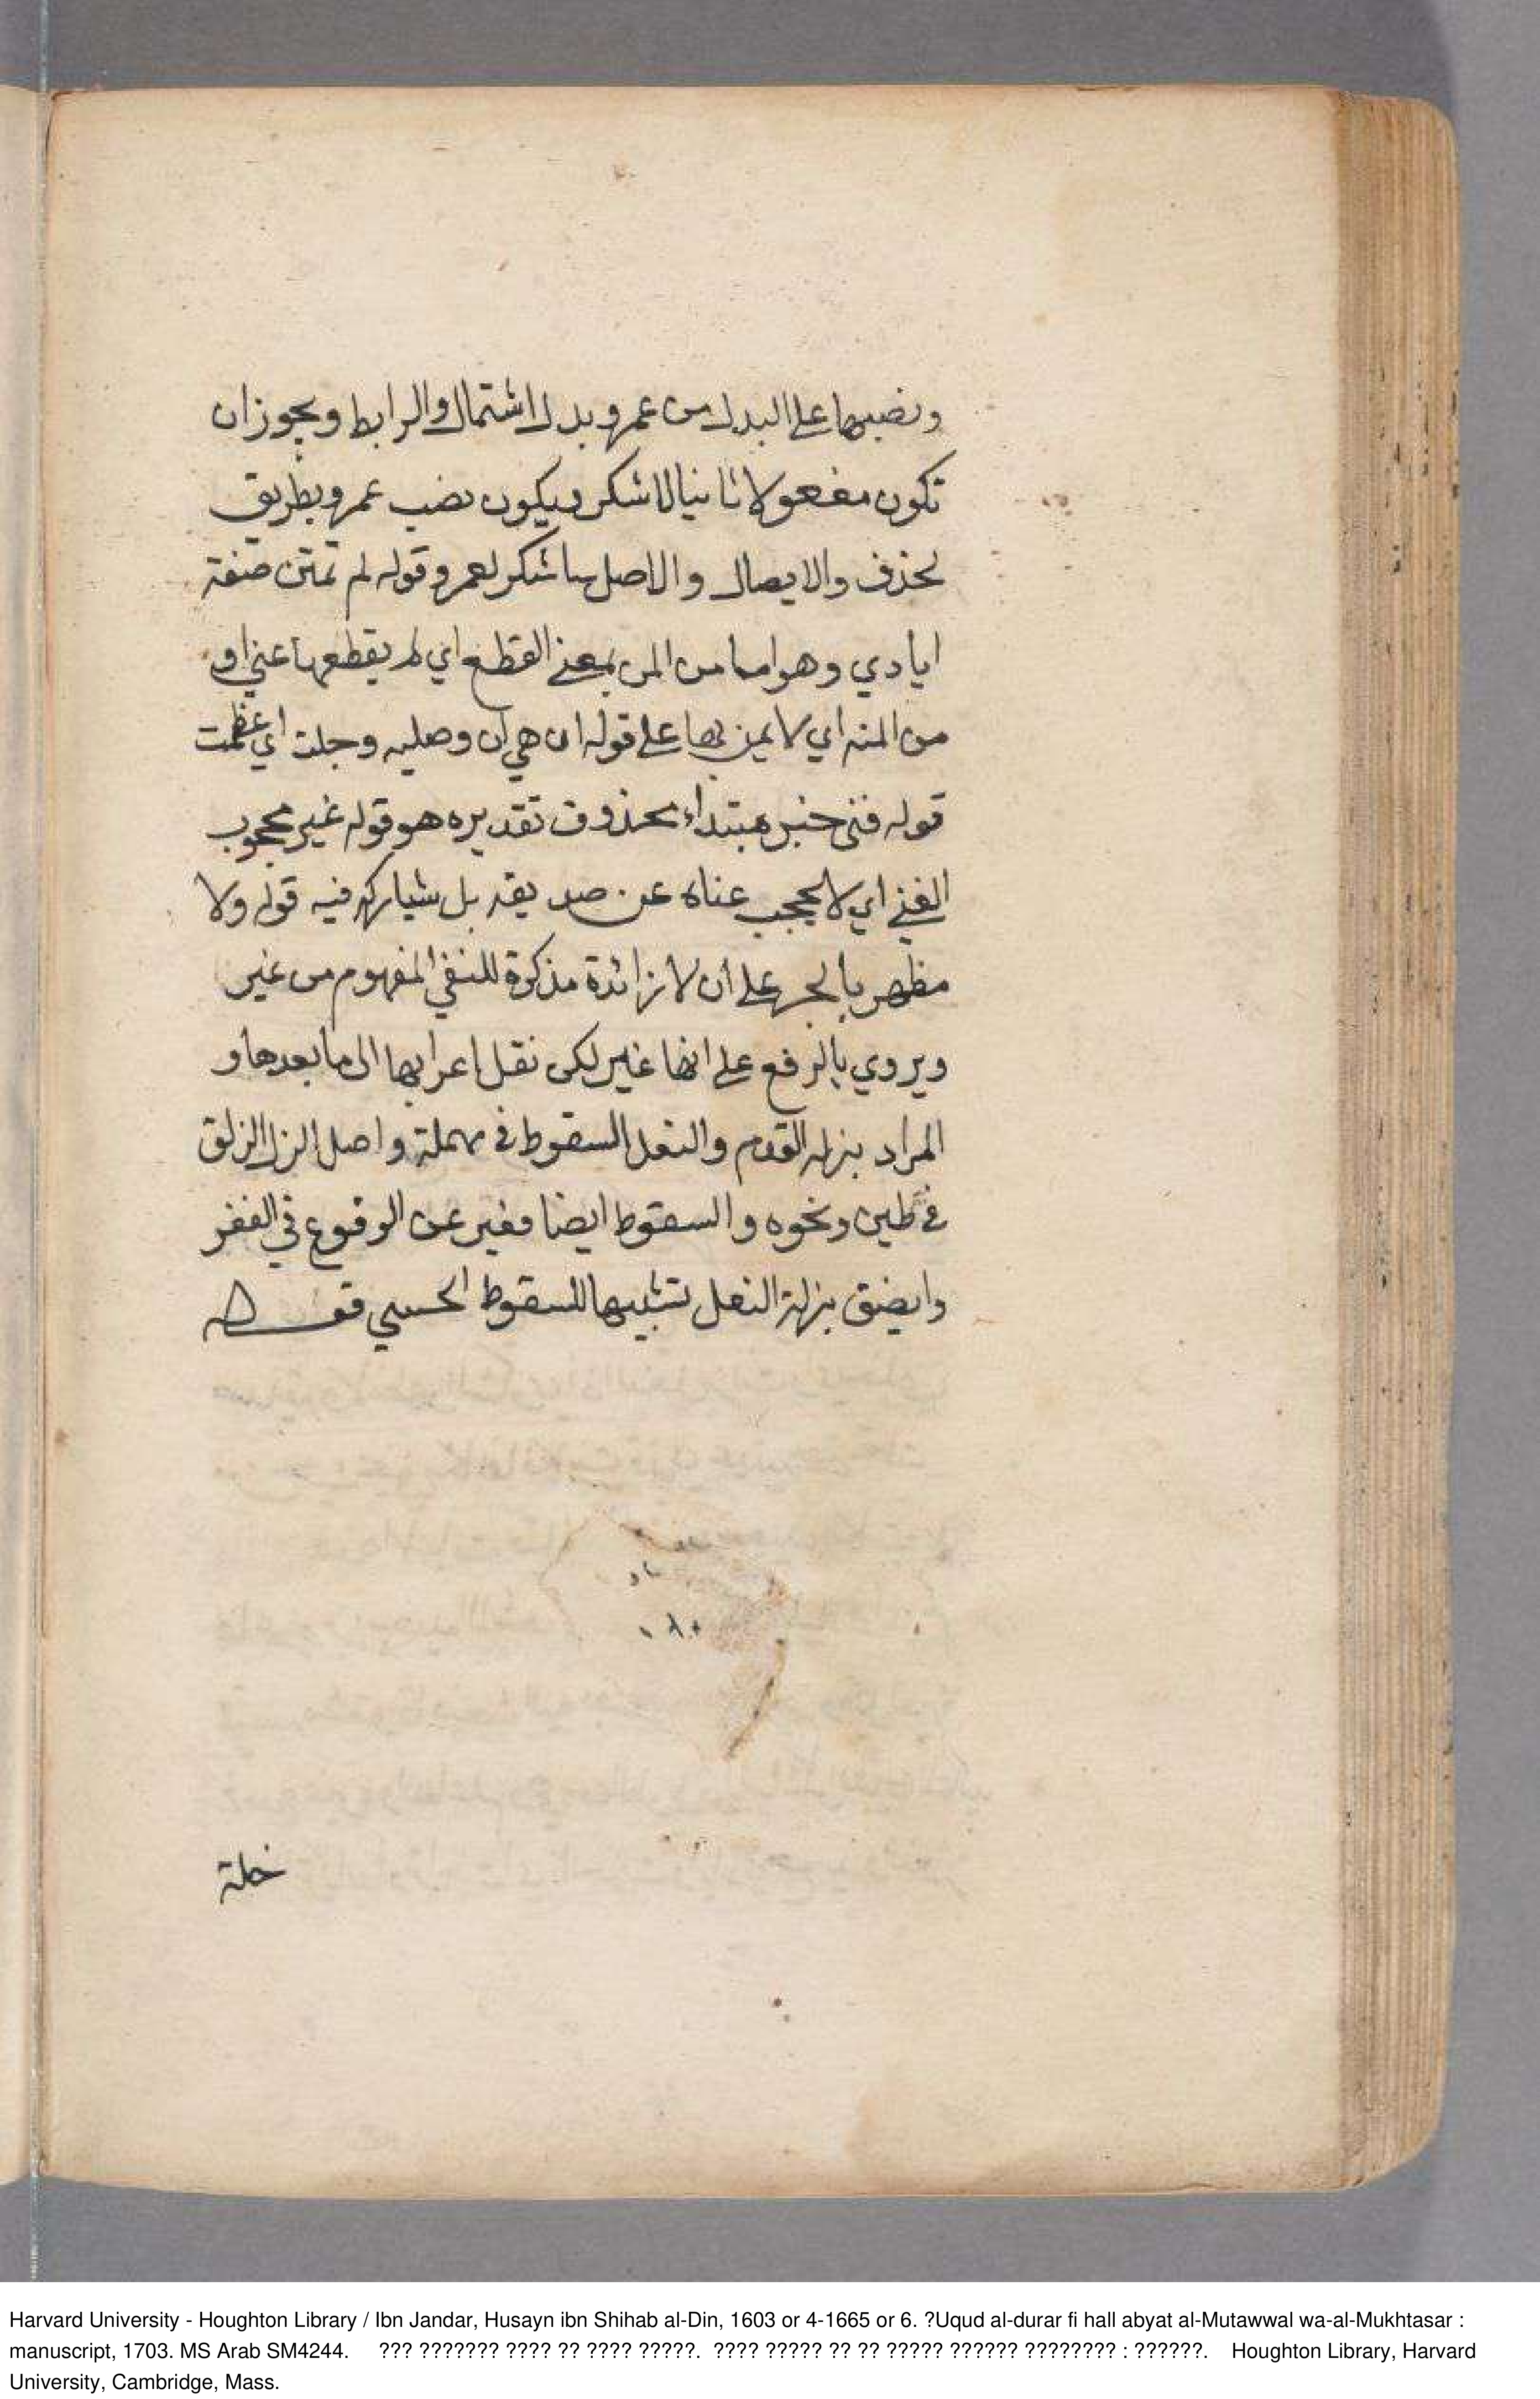 ونصبها على البدل من عمرو بدل اشتمال والرابط ويجوز ان
تكون مفعولا ثانيا لاشكر ويكون نصب عمرو بطريق
لحذف والايصال والاصل ساشكر لعمرو وقوله لم تمتن صفة
ايادي وهو اما من المن بمعنى القطع اي لم يقطعها عني او
من المنه اي لا يمن بها على قوله ان هي ان وصليه وجلت اي عظمت
قوله فتى خبر مبتداء محذوف تقديره هو قوله غير محجوب
الغنى اي لا يحجب غناه عن صديقه بل يشاركه فيه قوله ولا
مظهر بالجر على ان لا زائدة مذكرة للنفي المفهوم من غير
ويروي بالرفع على انها غير لكن نقل اعرابها الى ما بعدها و
المراد بزلة القدم والنعل السقوط في مهملة واصل الزلل الزلق
في طين ونحوه والسقوط ايضا فعبر عن الوقوع في الفقر
والضيق بزلة النعل تشبيها للسقوط الحسي قوله
١٨٠
خلة
Harvard University - Houghton Library / Ibn Jandar, Husayn ibn Shihab al-Din, 1603 or 4-1665 or 6. ?Uqud al-durar fi hall abyat al-Mutawwal wa-al-Mukhtasar :
manuscript, 1703. MS Arab SM4244. ??? ??????? ???? ?? ???? ?????. ???? ????? ?? ?? ????? ?????? ???????? : ??????. Houghton Library, Harvard
University, Cambridge, Mass.